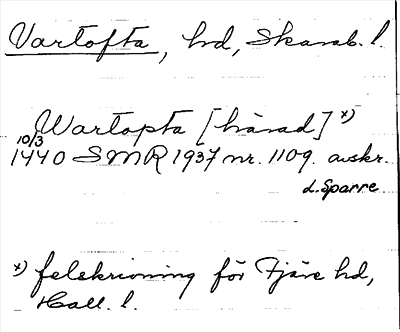 Vartofta, hd, Skarab. l.
Wartopta [härad] x)
10/3
1440 SMR 1937 nr. 1109. avskr.
L. Sparre
x) felskrivning för Fjäre hd,
Hall. l.